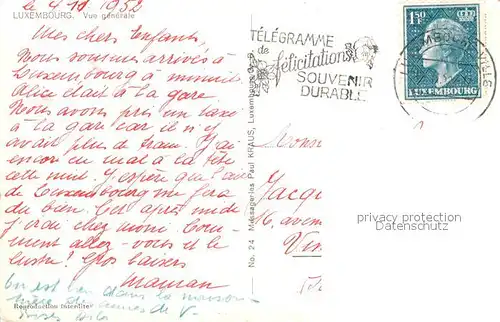 le 4.11.1952
LUXEMBOURG. Vue générale
Mes chers Enfants,
Nous sommes arrivés à
Luxembourg à minuit
Alice était à la gare
Nous avons pris un taxi
à la gare car il n'y
avait plus de tram. J'ai
encore eu mal à la tête
cette nuit. J'espère que l'air
de Luxembourg me fera
du bien. Cet après midi
j'irai chez moni. Com-
ment allez-vous et le
lustre! Gros baisers
Maman
on est bien dans la maison
Reproduction interdite
No. 24 Messageries Paul KRAUS, Luxembourg-Gare
TÉLÉGRAMME
de
félicitations
SOUVENIR
DURABLE
1F50
LUXEMBOURG
LUXEMBOURG-VILLE
Jacqu
16, avenue
privacy protection
Datenschutz